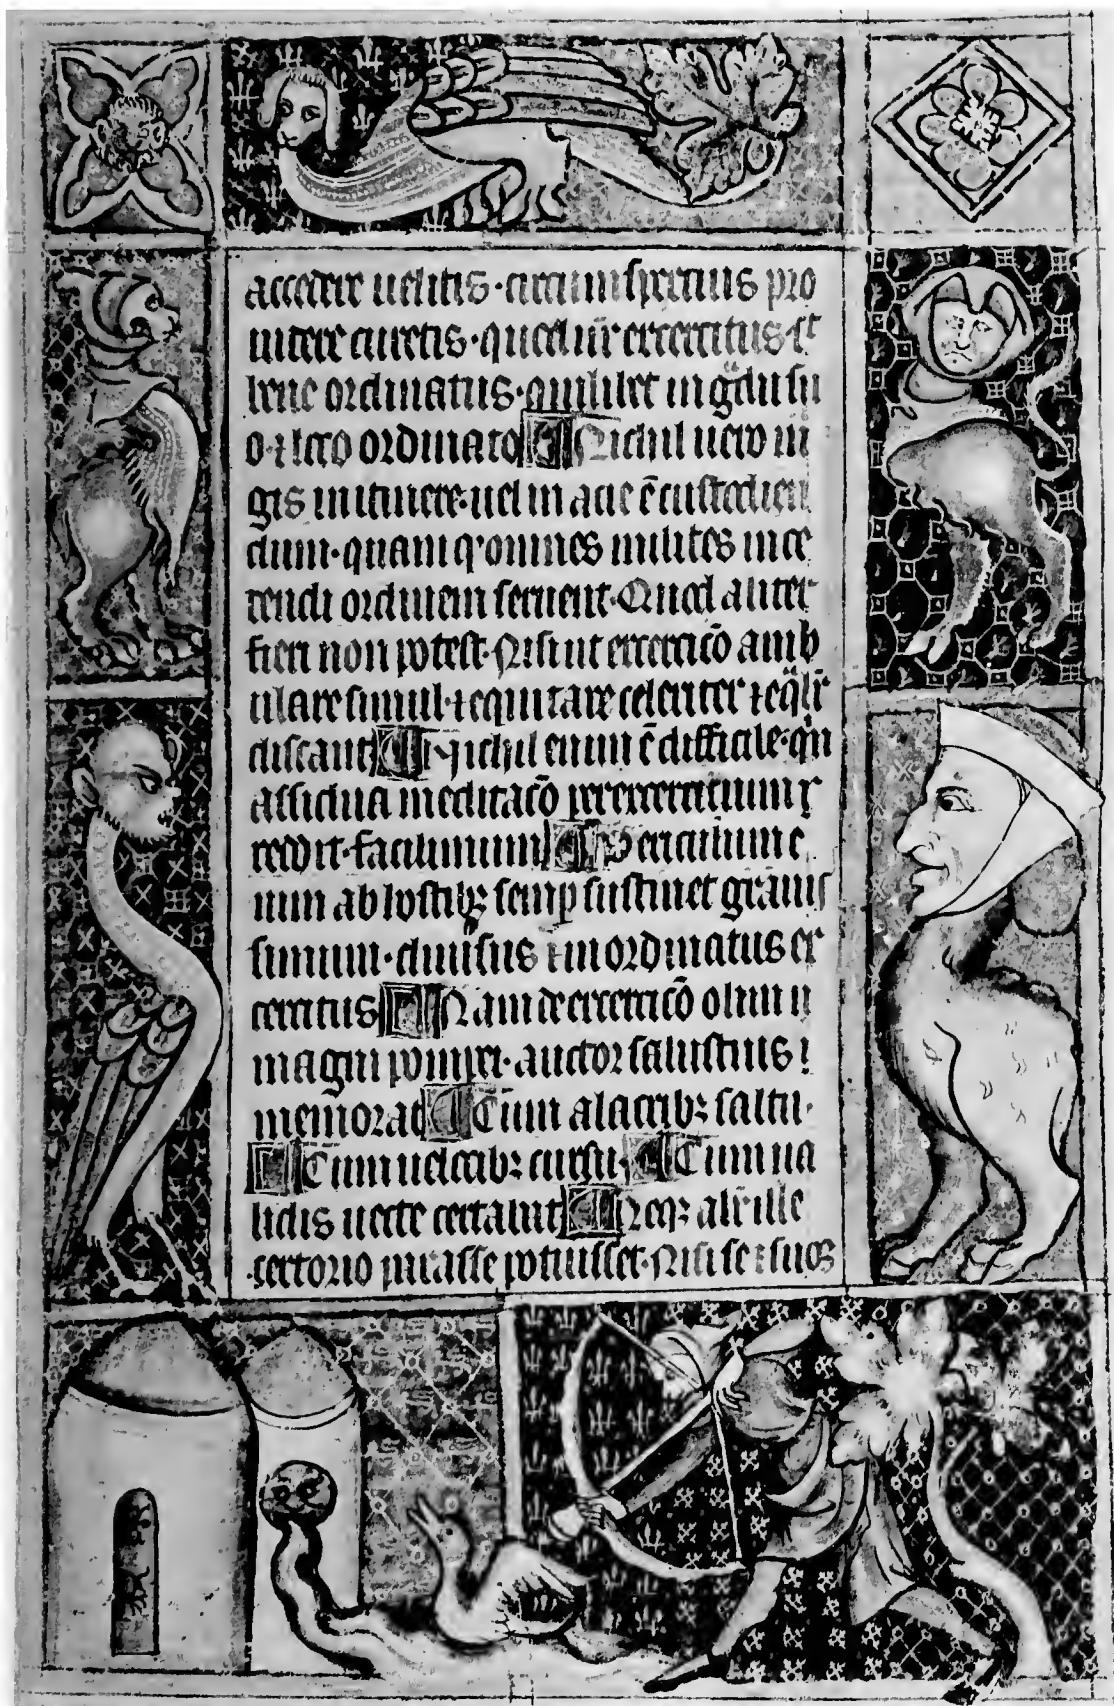 accedere uelitis · circumspectius pro
uidere curetis · qued ur̄ excercitus st
bene ordinatus · quilibet in gͣdu su
o · ⁊ loco ordinato ¶ Nichil uero ma
gis in itinere · uel in acie ē custodien
dum · quam qͩ omnes milites ince
dendi ordinem seruent · Quod aliter
fieri non potest · Nisi ut excercicō amb
ulare simul · ⁊ equitare celeriter ⁊ eqͣlr̄
discant ¶ Nichil enim ē difficile · qn̄
assidua meditacō
reddit · facilimum ¶ Periculum e
nim ab hostibꝫ semꝑ sustinet grauis
simum · diuisus ⁊ inordinatus ex
cercitus ¶ Nam de excercicō olim
magni pompei · auctor salustius
memorad ¶ Cum alacribꝫ saltu ·
¶ Cum uelocibꝫ cursu · ¶ Cum ua
lidis uecte certabat ¶ Neqꝫ alr̄ ille
sertorio putasse potuisset · Nisi se ⁊ suos